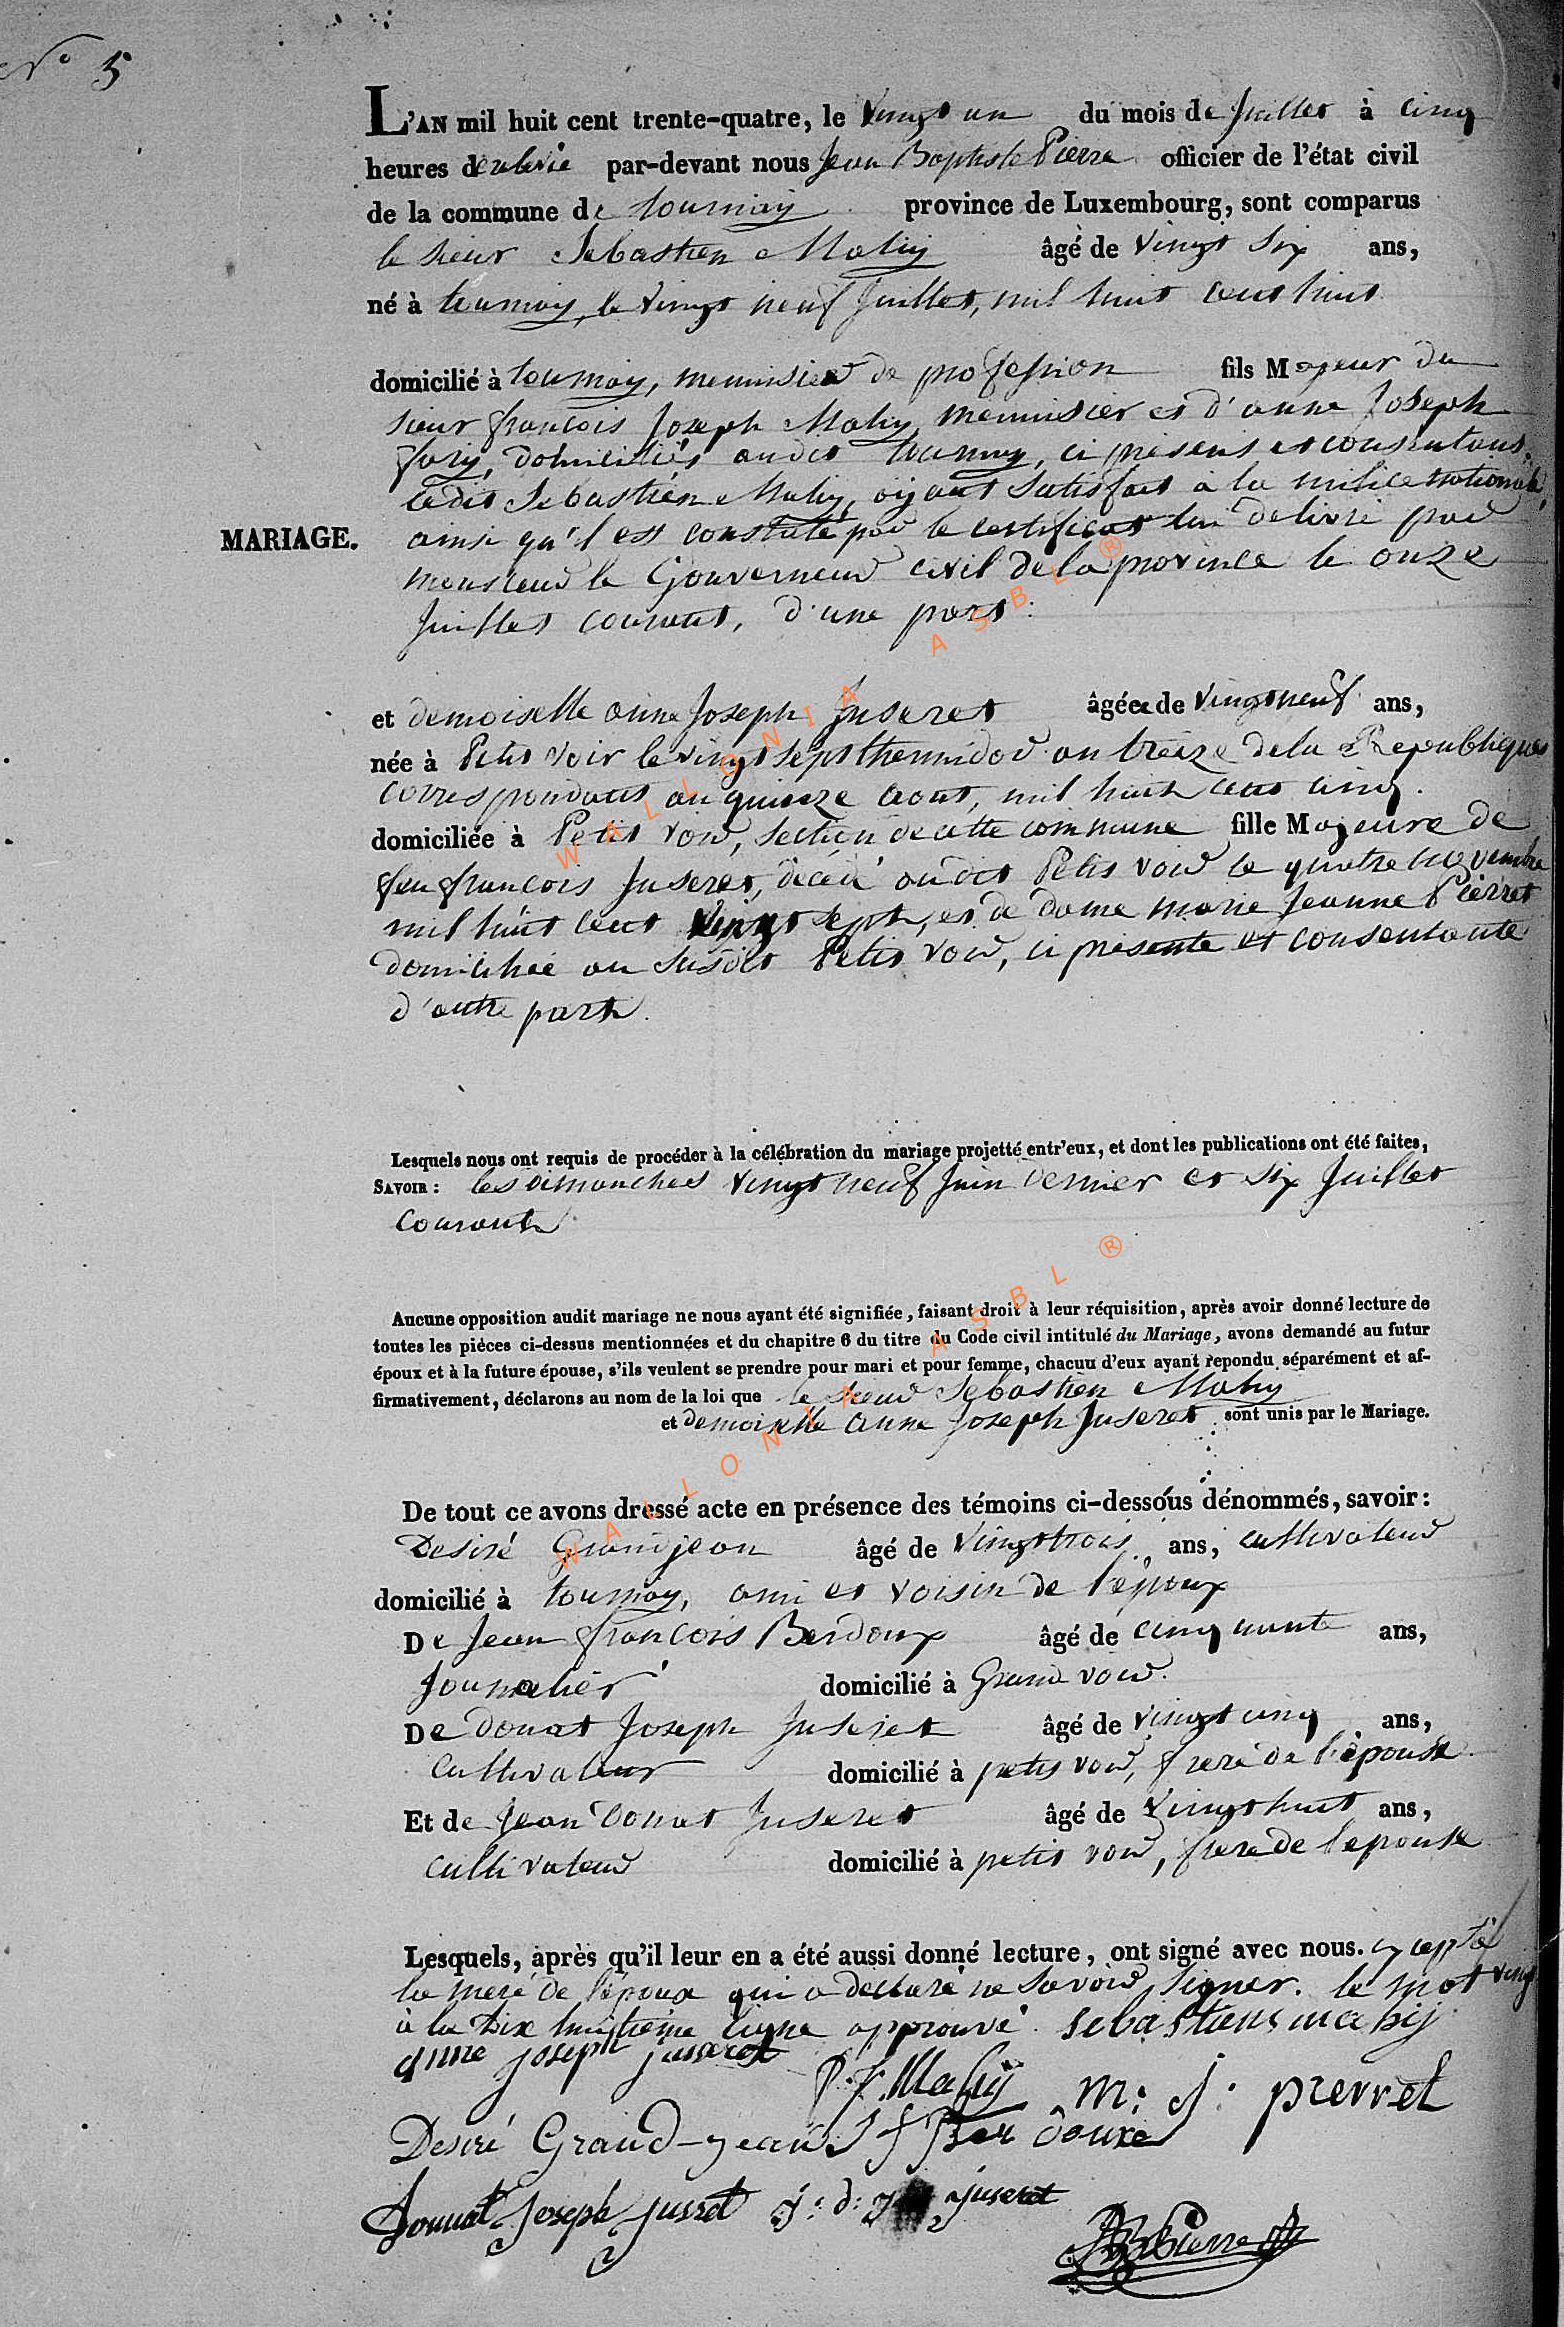 N° 5
L'AN mil huit cent trente-quatre, le vingt un du mois de juillet à cinq
heures de relevée par-devant nous Jean Baptiste Pierre officier de l'état civil
de la commune de tournay province de Luxembourg, sont comparus
le sieur Sebastien Mahy âgé de vingt six ans,
né à tournay, le vingt neuf juillet, mil huit cent huit
domicilié à tournay, menuisier de profession fils Majeur du
sieur françois Joseph Mahy, menuisier et d'anne Joseph
domiciliés audit tournay, ci présens et consentans.
ledit Sebastien Mahy, ayant satisfait à la milice nationale,
MARIAGE.
ainsi qu'il est constaté par le certificat lui délivré par
monsieur le Gouverneur civil de la province le onze
juillet courant, d'une part :
et demoiselle anne Joseph Juseret âgée de vingt neuf ans,
née à Petit voir le vingt sept thermidor an treize de la Republique
correspondant au quinze aout, mil huit cent cinq.
domiciliée à Petit voir, section de cette commune fille Majeure de
feu françois Juseret, décédé audit Petit voir le quatre novembre
mil huit cent vingt sept, et de dame marie Jeanne Pierret
domiciliée au susdit Petit voir, ci présente et consentante
d'autre part.
Lesquels nous ont requis de procéder à la célébration du mariage projetté entr'eux, et dont les publications ont été faites,
SAVOIR : les dimanches vingt neuf juin dernier et six juillet
courant
Aucune opposition audit mariage ne nous ayant été signifiée, faisant droit à leur réquisition, après avoir donné lecture de
toutes les pièces ci-dessus mentionnées et du chapitre 6 du titre du Code civil intitulé du Mariage, avons demandé au futur
époux et à la future épouse, s'ils veulent se prendre pour mari et pour femme, chacuu d'eux ayant repondu séparément et af-
firmativement, déclarons au nom de la loi que le sieur Sebastien Mahy
et demoiselle anne Joseph Juseret sont unis par le Mariage.
De tout ce avons dressé acte en présence des témoins ci-dessous dénommés, savoir :
Desiré Grandjean âgé de vingt trois ans, cultivateur
domicilié à tournay, ami et voisin de l'époux
De Jean françois Berdoux âgé de cinquante ans,
Journalier domicilié à Grand voir.
De donat Joseph Juseret âgé de vingt cinq ans,
cultivateur domicilié à petit voir, frere de l'épouse.
Et de Jean Donat Juseret âgé de vingt huit ans,
cultivateur domicilié à petit voir, frere de l'epouse
Lesquels, après qu'il leur en a été aussi donné lecture, ont signé avec nous. excepté
la mere de l'époux qui a declaré ne savoir signer. le mot vingt
à la dix huitième ligne approuvé. sebastiens mahij
anne joseph juseret
Mahij m: j: pierret
Desiré Grand-jean J f Ber doux
Donnat joseph jusret j: d: juseret
JBtePierre
WALLONIA ASBL ®
WALLONIA ASBL ®